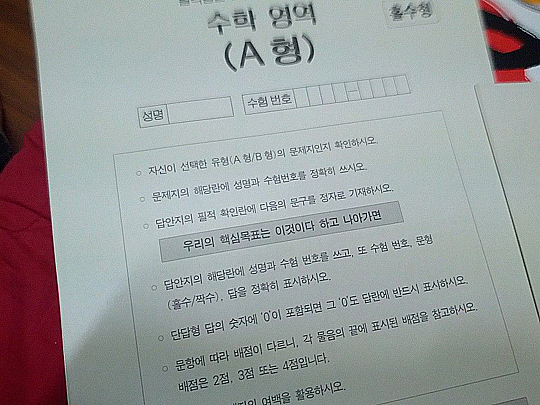 수학 영역
홀수형
(A 형)
성명
수험 번호
—
○ 자신이 선택한 유형(A 형/B 형)의 문제지인지 확인하시오.
○ 문제지의 해당란에 성명과 수험번호를 정확히 쓰시오.
○ 답안지의 필적 확인란에 다음의 문구를 정자로 기재하시오.
우리의 핵심목표는 이것이다 하고 나아가면
○ 답안지의 해당란에 성명과 수험 번호를 쓰고, 또 수험 번호, 문형
(홀수/짝수), 답을 정확히 표시하시오.
○ 단답형 답의 숫자에 '0'이 포함되면 그 '0'도 답란에 반드시 표시하시오.
○ 문항에 따라 배점이 다르니, 각 물음의 끝에 표시된 배점을 참고하시오.
배점은 2점, 3점 또는 4점입니다.
여백을 활용하시오.